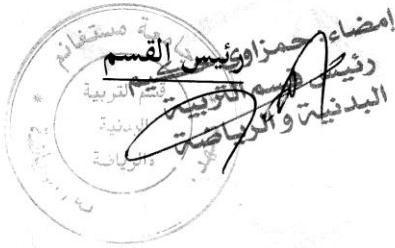 رئيس القسم
إمضاء حمزاوي حكيم
رئيس قسم التربية
البدنية والرياضة
مستغانم
قسم التربية
البدنية
والرياضة